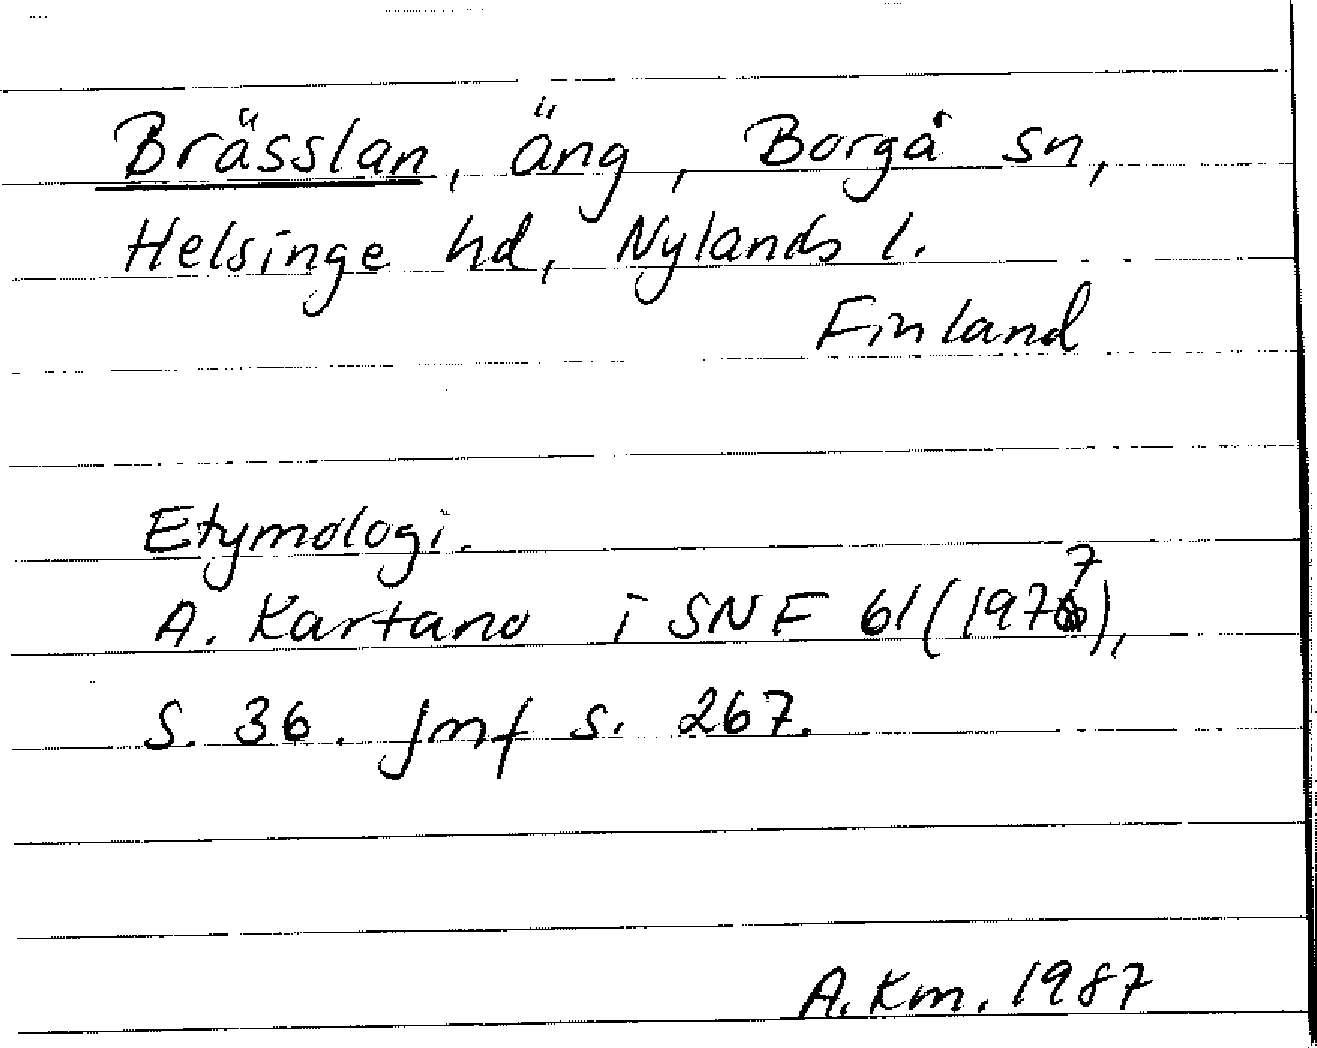 Brässlan, äng, Borgå sn,
Helsinge hd, Nylands l.
Finland
Etymologi.
A. Kartano i SNF 61 (1977),
S. 36. Jmf s. 267.
A. Km. 1987